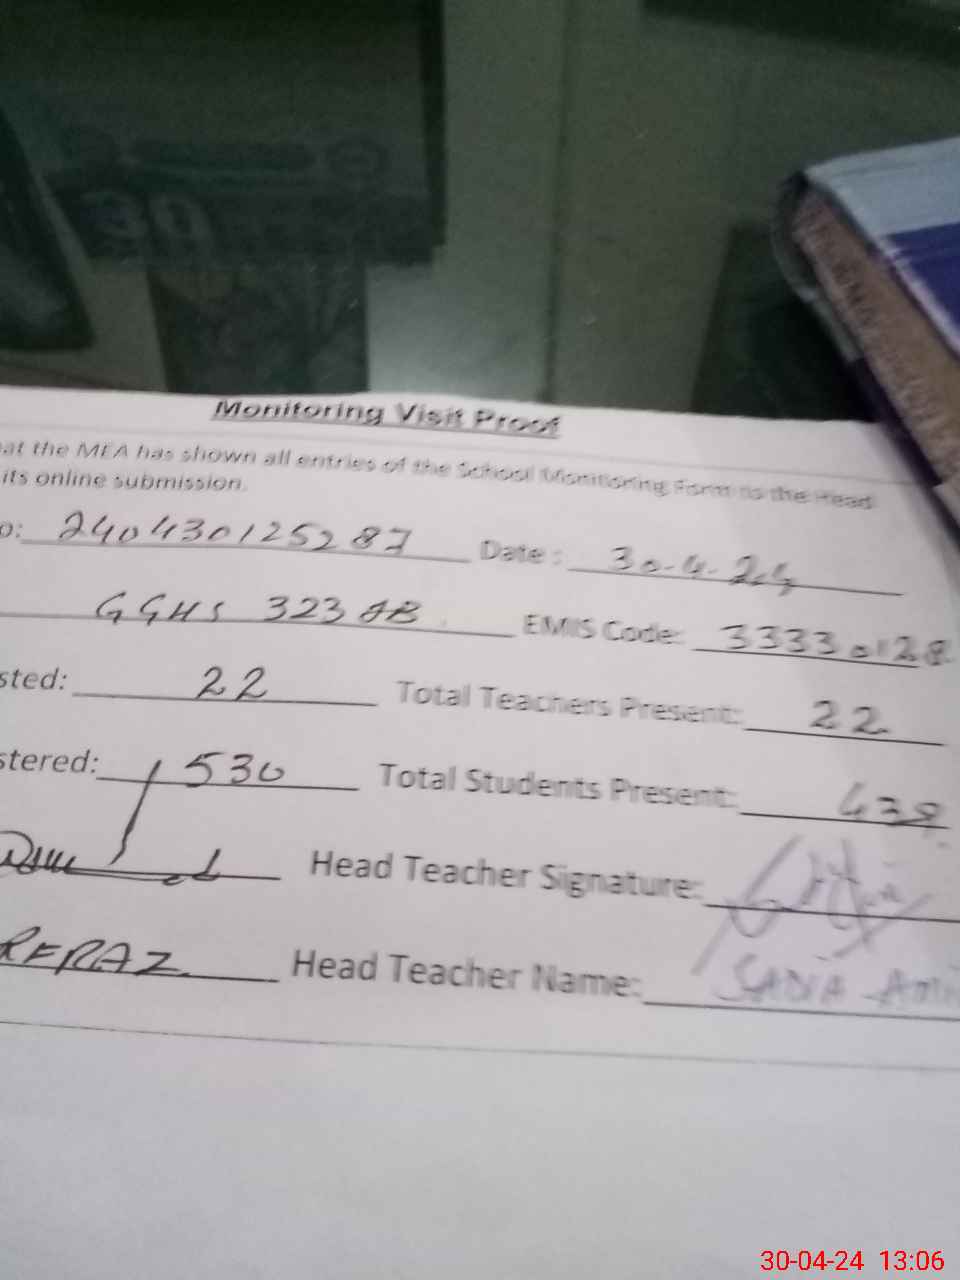 Monitoring Visit Proof
at the MEA has shown all entries of the School Monitoring Form to the Head
its online submission.
o: 240430125287 Date: 30-4-24
GGHS 323 JB EMIS Code: 33330128
sted: 22 Total Teachers Present: 22
stered: 530 Total Students Present: 438
Head Teacher Signature:
RFRAZ Head Teacher Name: SADIA Ami
30-04-24 13:06